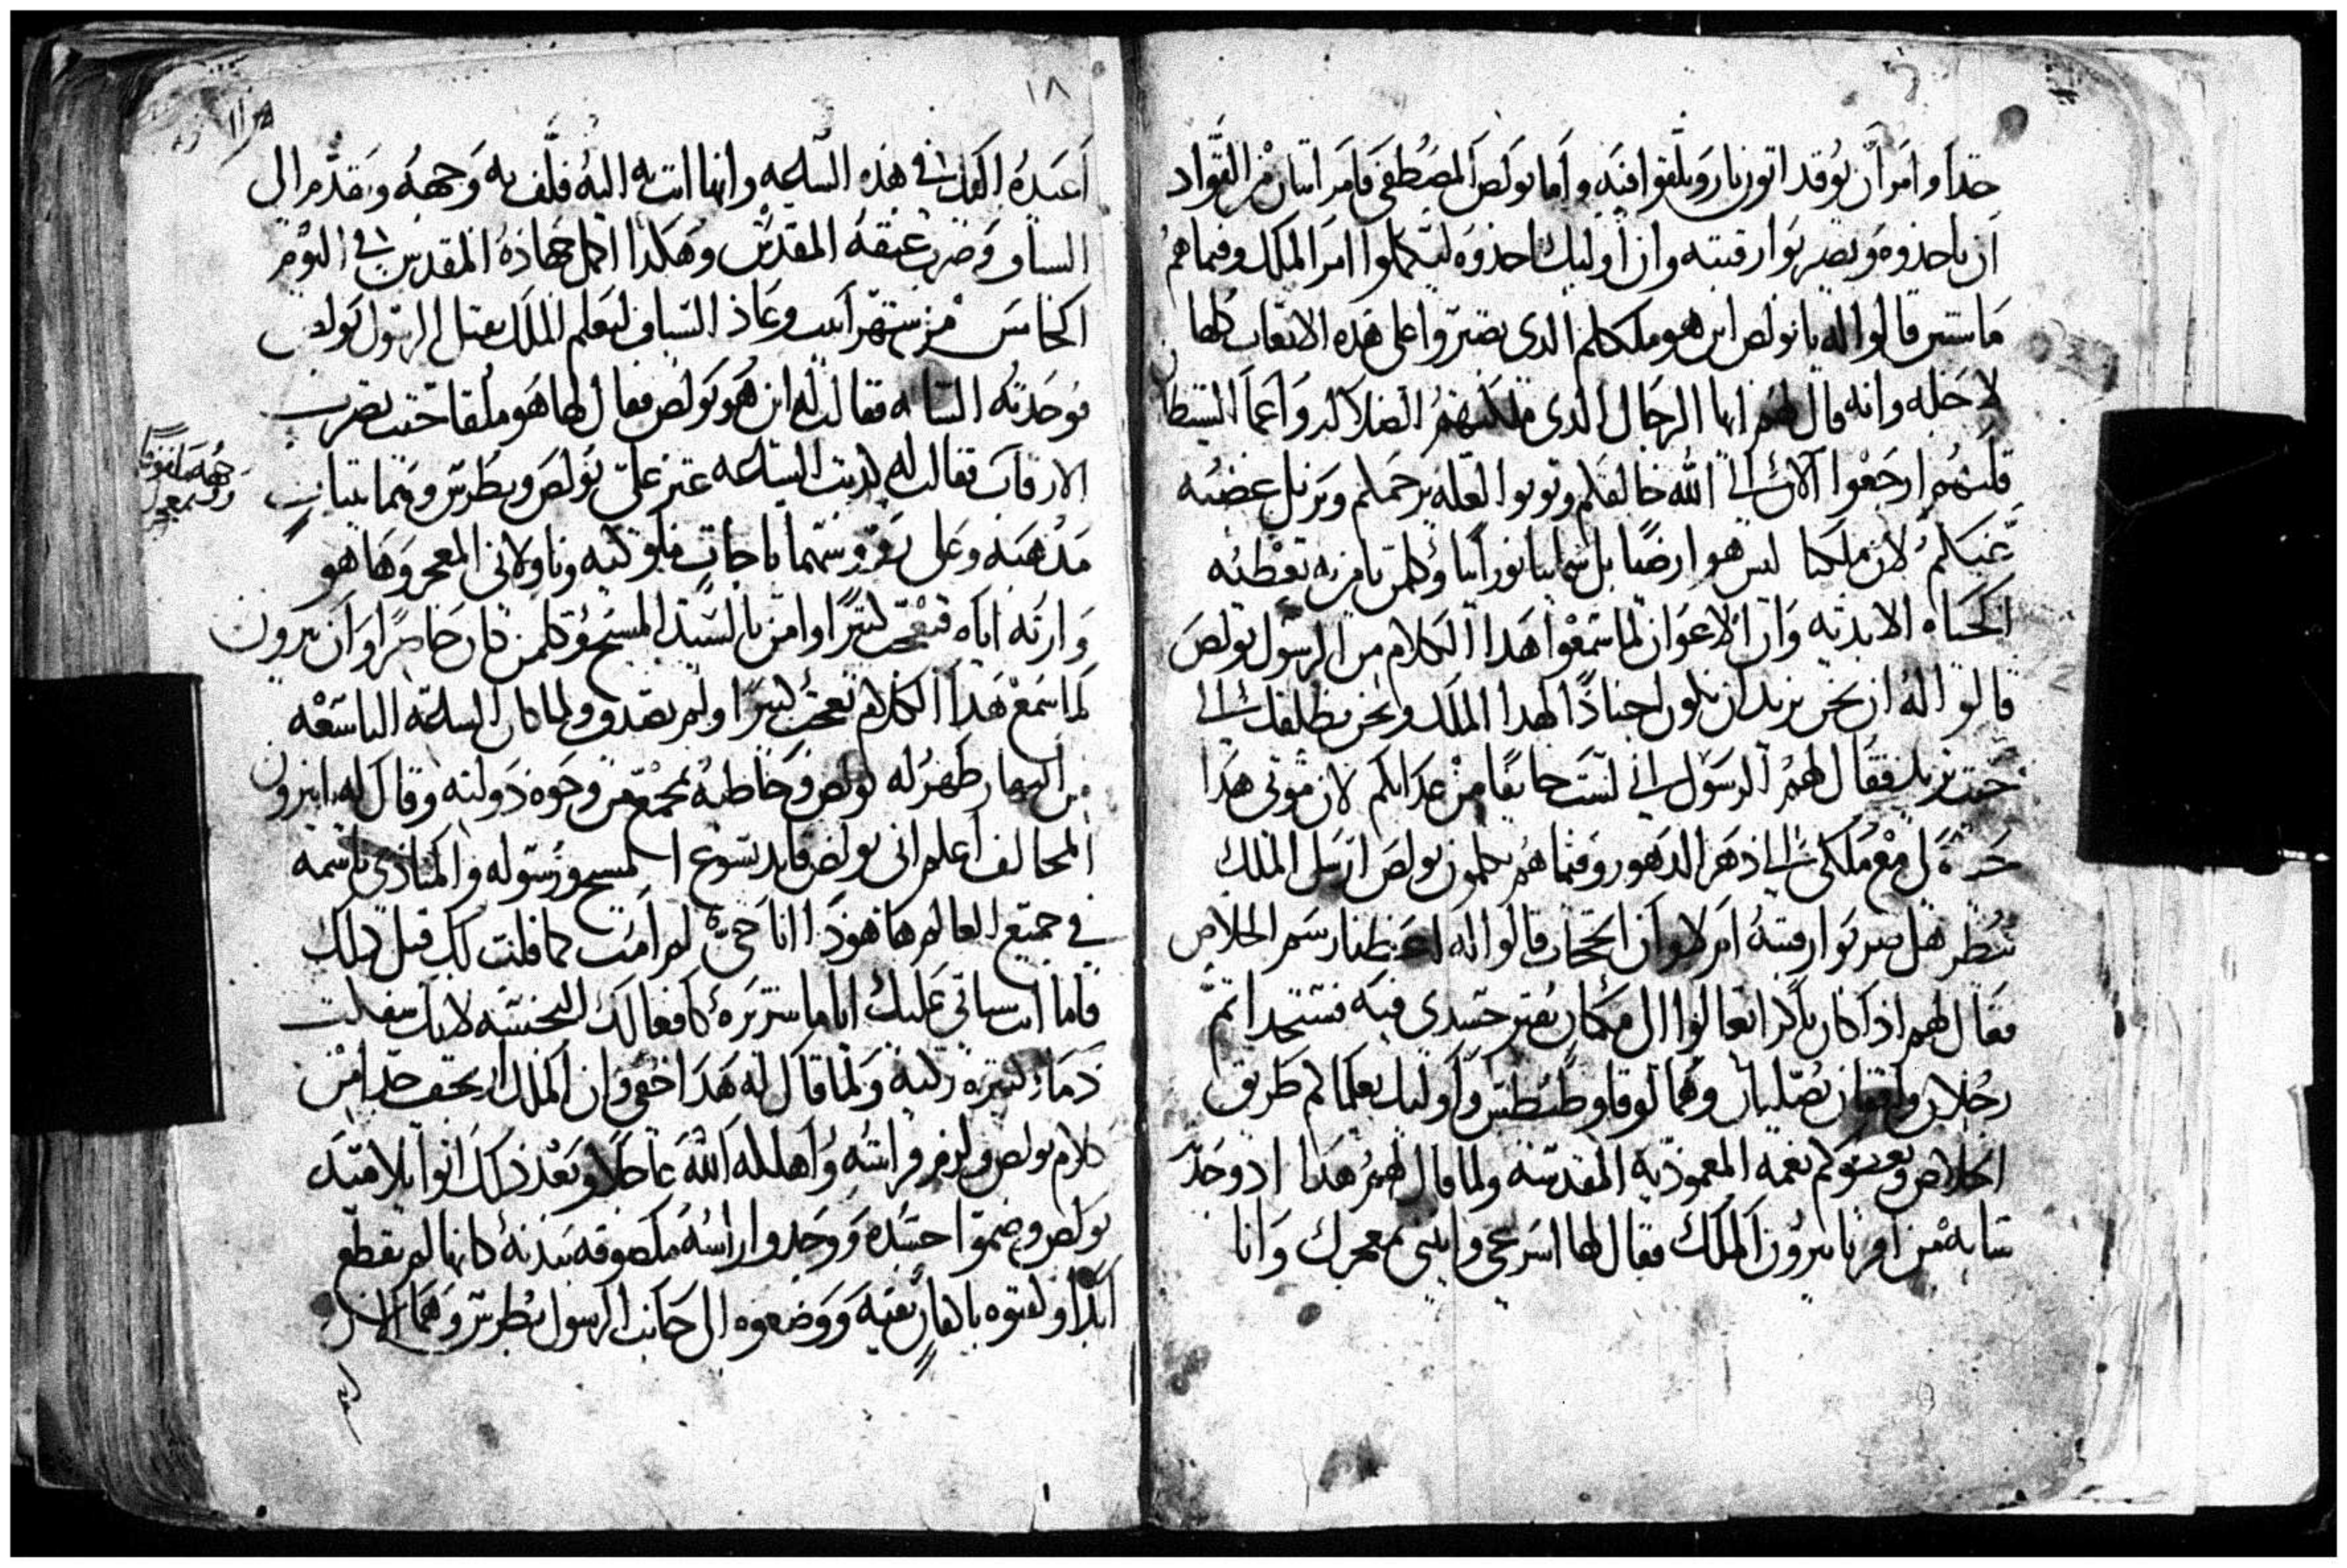 جدا وامر ان يوقد اتون نار ويلقوا فيه واما بولص المصطفى فامر اتنان من القواد
ان ياخذوه ويضربوا رقبته وان اوليك اخذوه ليكملوا امر الملك وفيما هم
ماشيين قالوا له يا بولص اين هو ملككم الدى تصبروا على هذه الاتعاب كلها
لاجله وانه قال لهم ايها الرجال الدى ملكتهم الضلاله واعما الشيطان
قلبهم ارجعوا الان الى الله خالقكم وتوبوا لعله يرحمكم ويزيل غضبه
عنكم لان ملكنا ليس هو ارضيا بل سماييا نورانيا وكلمن يامن به يعطيه
الحياه الابديه وان الاعوان لما سمعوا هدا الكلام من الرسول بولص
قالوا له ان نحن نريد ان نكون اجنادا لهدا الملك ونحن نطلقك الى
حيث تريد فقال لهم الرسول انى لست خايفا من عدابكم لان موتى هدا
لى مع ملكى الى دهر الدهور وفيما هم يكلمون بولص ارسل الملك
ينظر هل ضربوا رقبته ام لا وان قالوا له اعطينا رسم الخلاص
فقال لهم اذا كان باكرا تعالوا الى مكان يقبر جسدى فيه فستجدا تم
رجلان واقفان يصليان وهما لوقا وطيطس واوليك يعلماكم طريق
الخلاص ويعطوكم نعمه المعموديه المقدسه ولما قال لهم هدا اد وجد
شابه من اقربا نيرون الملك فقال لها اسرعى وايتينى بمعجرك وانا
١٨
اعيده اليك فى هذه الساعه وانها اتت به اليه فلف به وجهه وتقدم الى
السياف وضرب عنقه المقدس وهكدا اكمل جهاده المقدس فى اليوم
الخامس من شهر ابيب وعاد السياف ليعلم الملك بقتل الرسول بولص
فوجدته الشابه فقالت له اين هو بولص فقال لها هو ملقا حيث تضرب
الارقاب فقالت له كدبت الساعه عبر على بولص وبطرس وعليهما تياب
مدهبه وعلى روسهما تاجات وناولانى المعجر وها هو
وارته اياه فتعجب كتيرا وامن بالسيد المسيح وكلمن كان حاضرا وان نيرون
لما سمع هدا الكلام تعجب كتيرا ولم يصدق ولما كان الساعه التاسعه
من النهار ظهر له بولص وخاطبه بمجمع من وجوه دولته وقال له يا نيرون
المخالف اعلم انى بولص قايد يسوع المسيح ورسوله والمنادى باسمه
فى جميع العالم ها هودا انا حى لم امت كما قلت لك قبل دلك
فاما انت سياتى عليك اياما شريره كافعالك النجسه لانك سفكت
دماء كتيره زكيه ولما قال له هذا اختفى وان الملك ارتجف جدا من
كلام بولص ولزم فراشه واهلكه الله عاجلا وبعد ذلك اتوا تلاميد
بولص وضموا جسده ووجدوا راسه ملصوقه ببدنه كانها لم تقطع
ابدا ولفوه باكفان نقيه ووضعوه الى جانب الرسول بطرس وهما الان